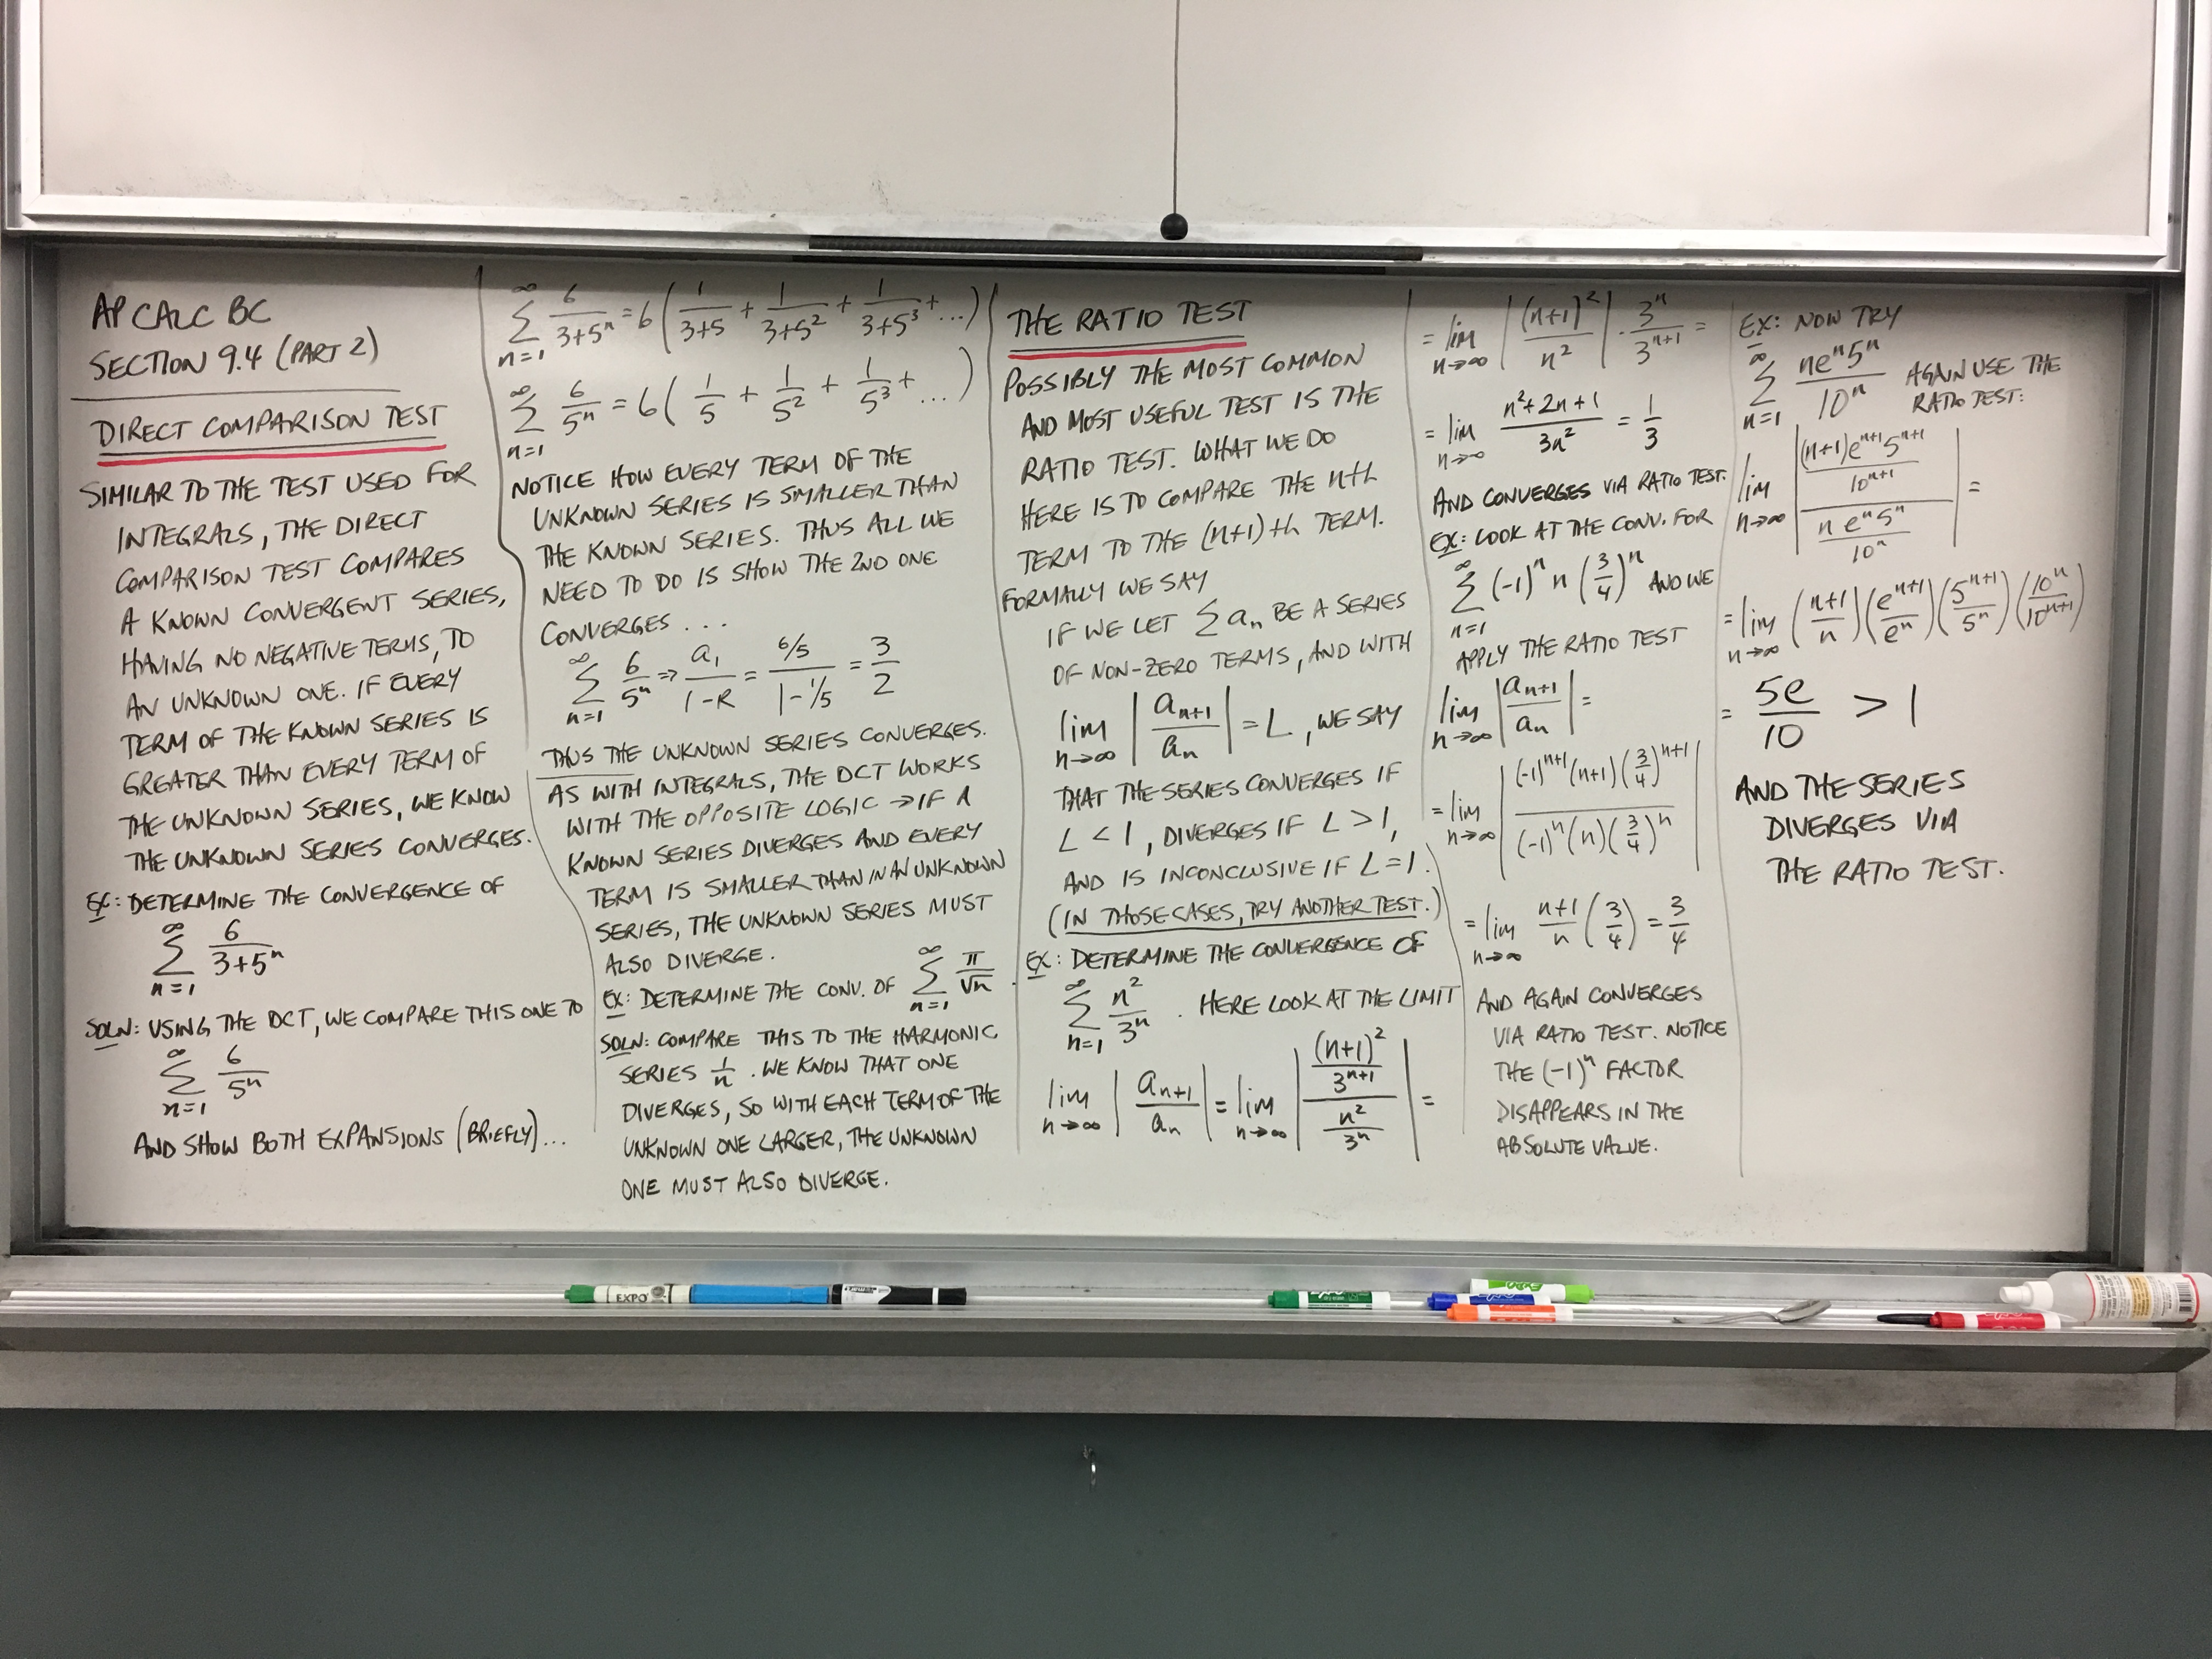 AP CALC BC
SECTION 9.4 (PART 2)
DIRECT COMPARISON TEST
SIMILAR TO THE TEST USED FOR
INTEGRALS, THE DIRECT
COMPARISON TEST COMPARES
A KNOWN CONVERGENT SERIES,
HAVING NO NEGATIVE TERMS, TO
AN UNKNOWN ONE. IF EVERY
TERM OF THE KNOWN SERIES IS
GREATER THAN EVERY TERM OF
THE UNKNOWN SERIES, WE KNOW
THE UNKNOWN SERIES CONVERGES.
EX: DETERMINE THE CONVERGENCE OF
∑_{n=1}^{∞} 6/(3+5^n)
SOLN: USING THE DCT, WE COMPARE THIS ONE TO
∑_{n=1}^{∞} 6/5^n
AND SHOW BOTH EXPANSIONS (BRIEFLY)...
∑_{n=1}^{∞} 6/(3+5^n) = 6(1/(3+5) + 1/(3+5^2) + 1/(3+5^3) + ...)
∑_{n=1}^{∞} 6/5^n = 6(1/5 + 1/5^2 + 1/5^3 + ...)
NOTICE HOW EVERY TERM OF THE
UNKNOWN SERIES IS SMALLER THAN
THE KNOWN SERIES. THUS ALL WE
NEED TO DO IS SHOW THE 2ND ONE
CONVERGES...
∑_{n=1}^{∞} 6/5^n ⇒ a_1/(1-R) = (6/5)/(1-1/5) = 3/2
THUS THE UNKNOWN SERIES CONVERGES.
AS WITH INTEGRALS, THE DCT WORKS
WITH THE OPPOSITE LOGIC → IF A
KNOWN SERIES DIVERGES AND EVERY
TERM IS SMALLER THAN IN AN UNKNOWN
SERIES, THE UNKNOWN SERIES MUST
ALSO DIVERGE.
EX: DETERMINE THE CONV. OF ∑_{n=1}^{∞} π/√n.
SOLN: COMPARE THIS TO THE HARMONIC
SERIES 1/n. WE KNOW THAT ONE
DIVERGES, SO WITH EACH TERM OF THE
UNKNOWN ONE LARGER, THE UNKNOWN
ONE MUST ALSO DIVERGE.
THE RATIO TEST
POSSIBLY THE MOST COMMON
AND MOST USEFUL TEST IS THE
RATIO TEST. WHAT WE DO
HERE IS TO COMPARE THE nth
TERM TO THE (n+1)th TERM.
FORMALLY WE SAY
IF WE LET ∑a_n BE A SERIES
OF NON-ZERO TERMS, AND WITH
lim_{n→∞} |a_{n+1}/a_n| = L, WE SAY
THAT THE SERIES CONVERGES IF
L < 1, DIVERGES IF L > 1,
AND IS INCONCLUSIVE IF L = 1.
(IN THOSE CASES, TRY ANOTHER TEST.)
EX: DETERMINE THE CONVERGENCE OF
∑_{n=1}^{∞} n^2/3^n. HERE LOOK AT THE LIMIT
lim_{n→∞} |a_{n+1}/a_n| = lim_{n→∞} |((n+1)^2/3^{n+1})/(n^2/3^n)| =
= lim_{n→∞} |(n+1)^2/n^2| · 3^n/3^{n+1} =
= lim_{n→∞} (n^2+2n+1)/(3n^2) = 1/3
AND CONVERGES VIA RATIO TEST.
EX: LOOK AT THE CONV. FOR
∑_{n=1}^{∞} (-1)^n n (3/4)^n AND WE
APPLY THE RATIO TEST
lim_{n→∞} |a_{n+1}/a_n| =
= lim_{n→∞} |((-1)^{n+1}(n+1)(3/4)^{n+1})/((-1)^n(n)(3/4)^n)|
= lim_{n→∞} (n+1)/n (3/4) = 3/4
AND AGAIN CONVERGES
VIA RATIO TEST. NOTICE
THE (-1)^n FACTOR
DISAPPEARS IN THE
ABSOLUTE VALUE.
EX: NOW TRY
∑_{n=1}^{∞} ne^n5^n/10^n AGAIN USE THE
RATIO TEST:
lim_{n→∞} |((n+1)e^{n+1}5^{n+1}/10^{n+1})/(ne^n5^n/10^n)| =
= lim_{n→∞} ((n+1)/n)(e^{n+1}/e^n)(5^{n+1}/5^n)(10^n/10^{n+1})
= 5e/10 > 1
AND THE SERIES
DIVERGES VIA
THE RATIO TEST.
EXPO